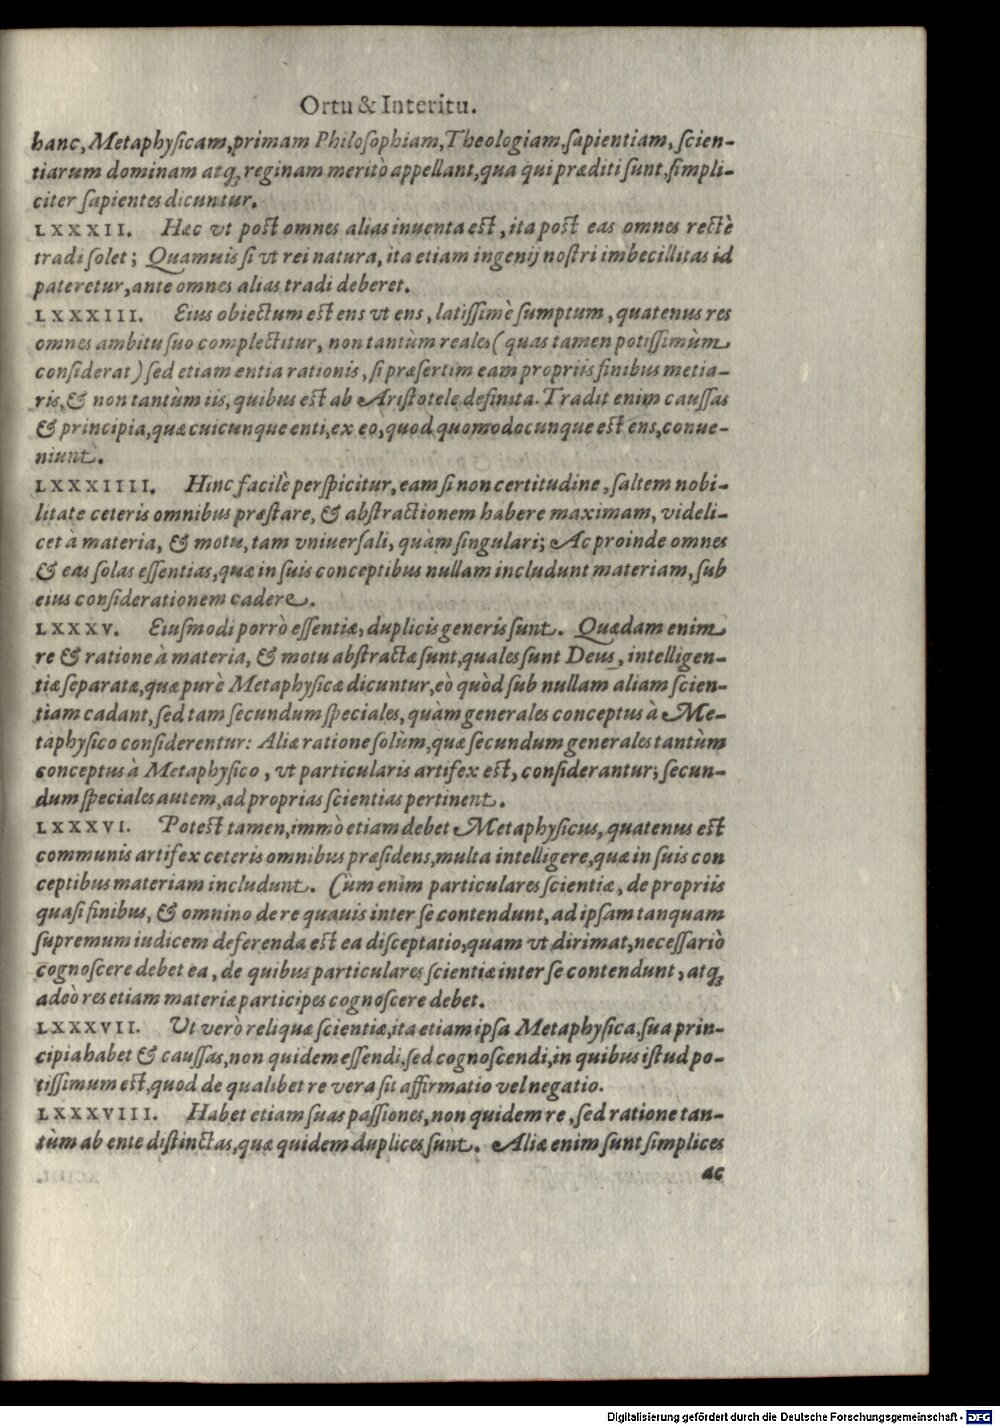 Ortu & Interitu.
hanc, Metaphysicam, primam Philosophiam, Theologiam, sapientiam, scien-
tiarum dominam atq; reginam meritò appellant, qua qui præditi sunt, simpli-
citer sapientes dicuntur.
LXXXII. Hæc vt post omnes alias inuenta est, ita post eas omnes rectè
tradi solet; Quamuis si vt rei natura, ita etiam ingenij nostri imbecillitas id
pateretur, ante omnes alias tradi deberet.
LXXXIII. Eius obiectum est ens vt ens, latissimè sumptum, quatenus res
omnes ambitu suo complectitur, non tantùm reales (quas tamen potissimùm
considerat) sed etiam entia rationis, si præsertim eam propriis finibus metia-
ris, & non tantùm iis, quibus est ab Aristotele definita. Tradit enim caussas
& principia, quæ cuicunque enti, ex eo, quod quomodocunque est ens, conue-
niunt.
LXXXIIII. Hinc facilè perspicitur, eam si non certitudine, saltem nobi-
litate ceteris omnibus præstare, & abstractionem habere maximam, videli-
cet à materia, & motu, tam vniuersali, quàm singulari; Ac proinde omnes
& eas solas essentias, quæ in suis conceptibus nullam includunt materiam, sub
eius considerationem cadere.
LXXXV. Eiusmodi porrò essentiæ, duplicis generis sunt. Quædam enim
re & ratione à materia, & motu abstractæ sunt, quales sunt Deus, intelligen-
tiæ separatæ, quæ purè Metaphysicæ dicuntur, eò quòd sub nullam aliam scien-
tiam cadant, sed tam secundum speciales, quàm generales conceptus à Me-
taphysico considerentur: Aliæ ratione solùm, quæ secundum generales tantùm
conceptus à Metaphysico, vt particularis artifex est, considerantur; secun-
dum speciales autem, ad proprias scientias pertinent.
LXXXVI. Potest tamen, immò etiam debet Metaphysicus, quatenus est
communis artifex ceteris omnibus præsidens, multa intelligere, quæ in suis con
ceptibus materiam includunt. Cùm enim particulares scientiæ, de propriis
quasi finibus, & omnino de re quauis inter se contendunt, ad ipsam tanquam
supremum iudicem deferenda est ea disceptatio, quam vt dirimat, necessariò
cognoscere debet ea, de quibus particulares scientiæ inter se contendunt, atq;
adeò res etiam materiæ participes cognoscere debet.
LXXXVII. Ut verò reliquæ scientiæ, ita etiam ipsa Metaphysica, sua prin-
cipia habet & caussas, non quidem essendi, sed cognoscendi, in quibus istud po-
tissimum est, quod de qualibet re vera sit affirmatio vel negatio.
LXXXVIII. Habet etiam suas passiones, non quidem re, sed ratione tan-
tùm ab ente distinctas, quæ quidem duplices sunt. Aliæ enim sunt simplices
ac
Digitalisierung gefördert durch die Deutsche Forschungsgemeinschaft - DFG